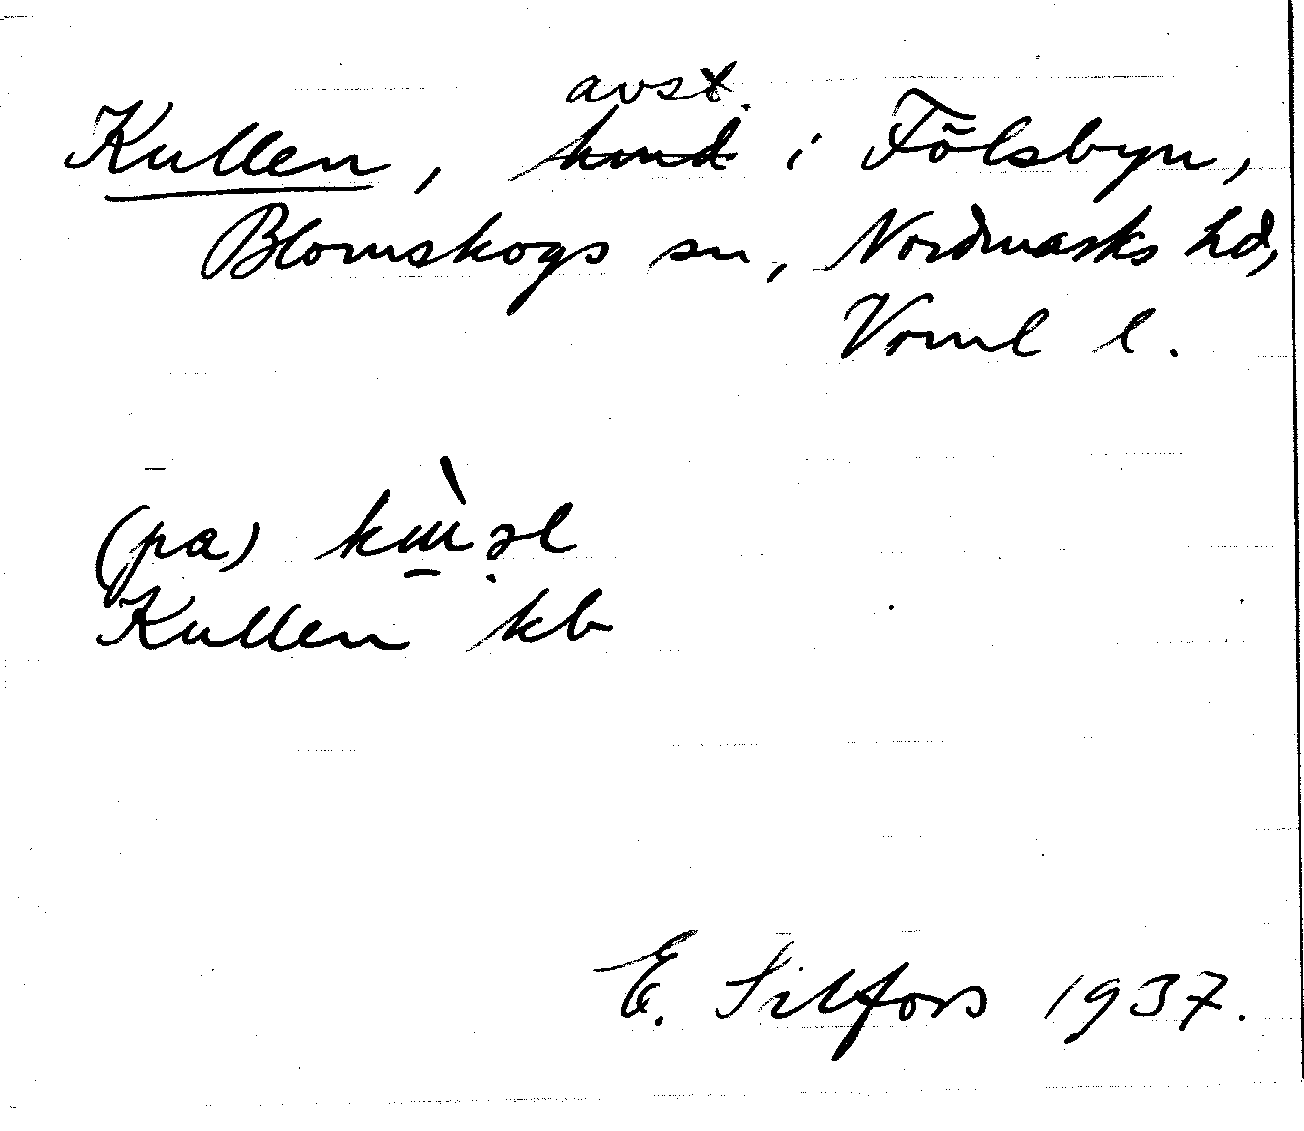 avst.
Kullen, hmd i Fölsbyn,
Blomskogs sn, Nordmarks hd,
Vrml l.
(pa)
Kullen kb
E. Silfors 1937.